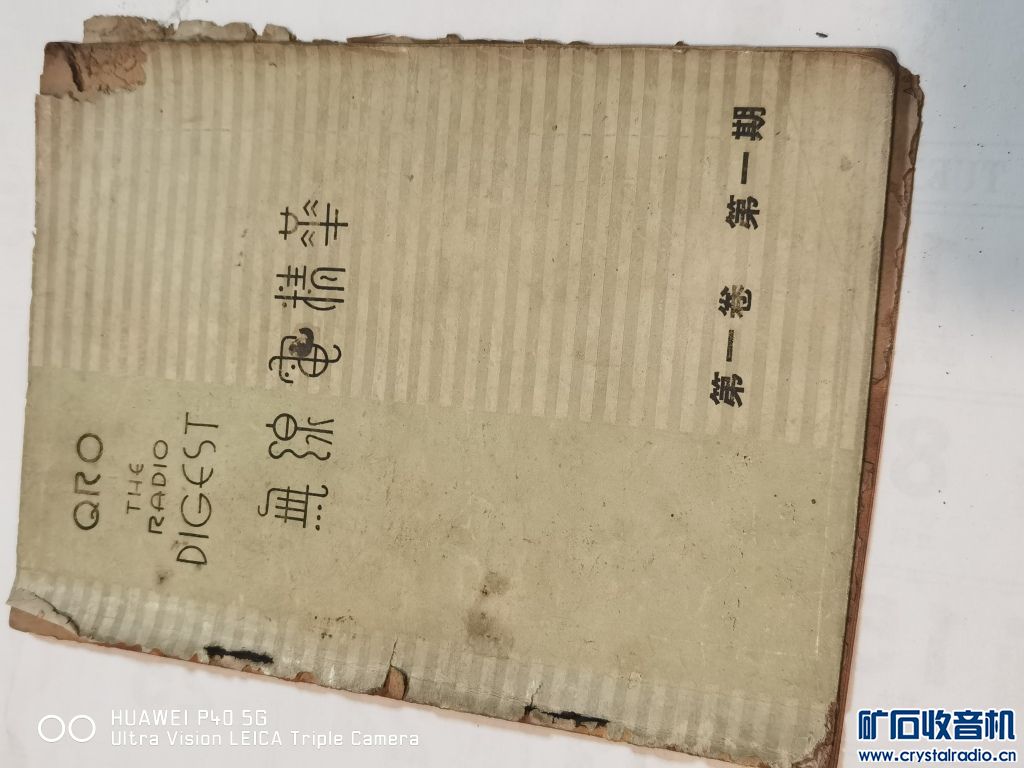 QRO
THE
RADIO
DIGEST
無線電精華
第一卷 第一期
HUAWEI P40 5G
Ultra Vision LEICA Triple Camera
矿石收音机
www.crystalradio.cn